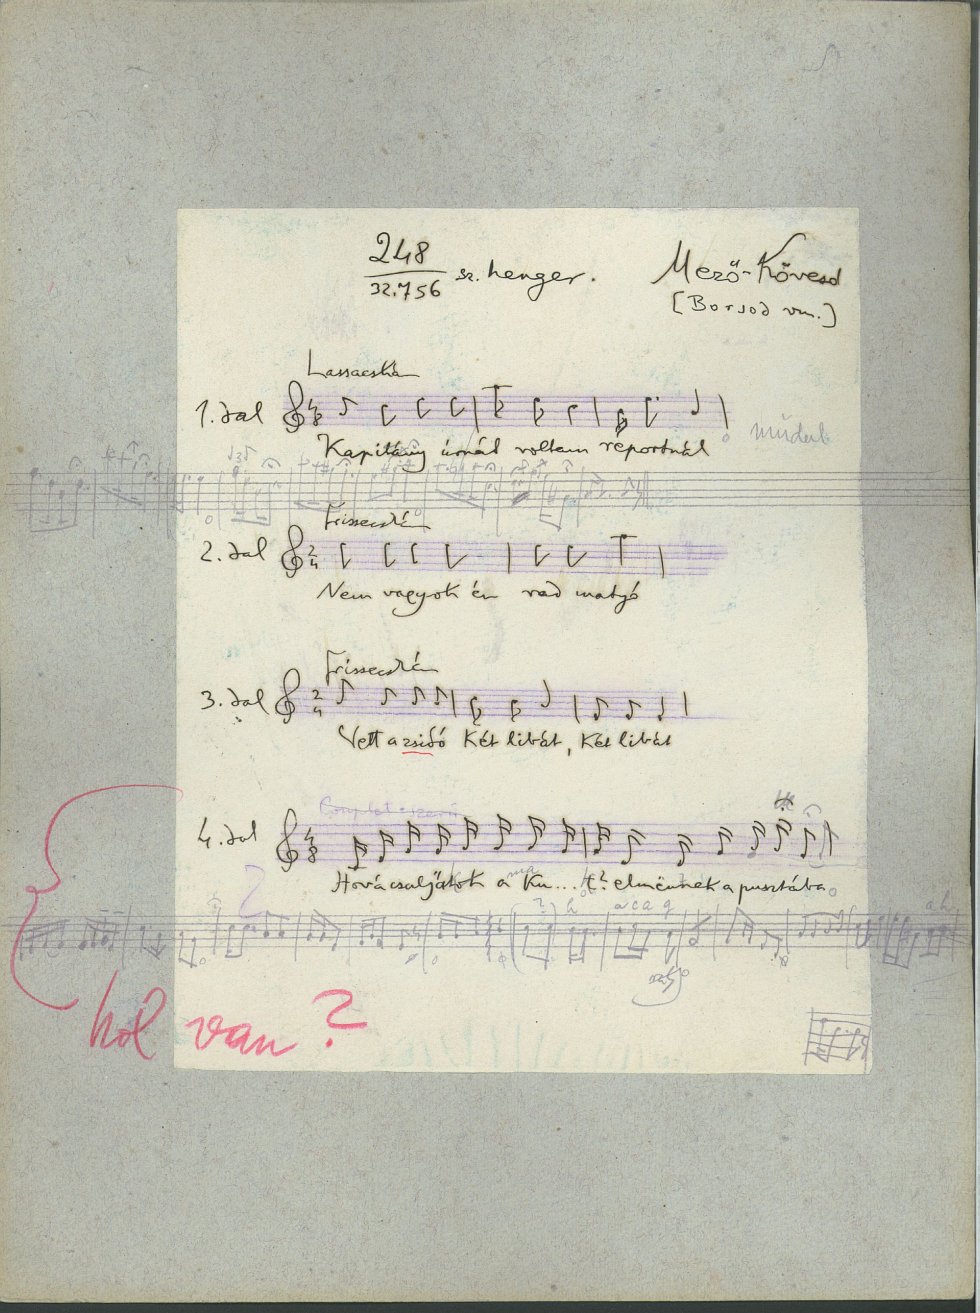 248
32.756 sz. henger.
Mező-Kövesd
[Borsod vm.]
Lassacskán
1. dal
Kapitány úrnál voltam réportnál
műdal
Frissecskén
2. dal
Nem vagyok én rad matyó
Frissecskén
3. dal
Vett a zsidó két libát, két libát
4. dal
Hová csaljátok a Ku... elmennek a pusztába
a c a g
a h
hol van?